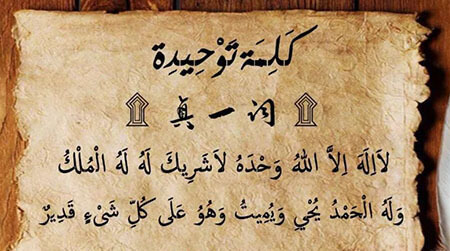 كَلِمَة تَوْحِيدِة
۩ 真一词 ۩
لاَاِلَهَ اِلاَّ اللهُ وَحْدَهُ لاَشَرِيكَ لَهُ لَهُ الْمُلْكُ
وَلَهُ الْحَمْدُ يُحْيِ وَيُمِيتُ وَهُوَ عَلَى كُلِّ شَىْءٍ قَدِيرٌ